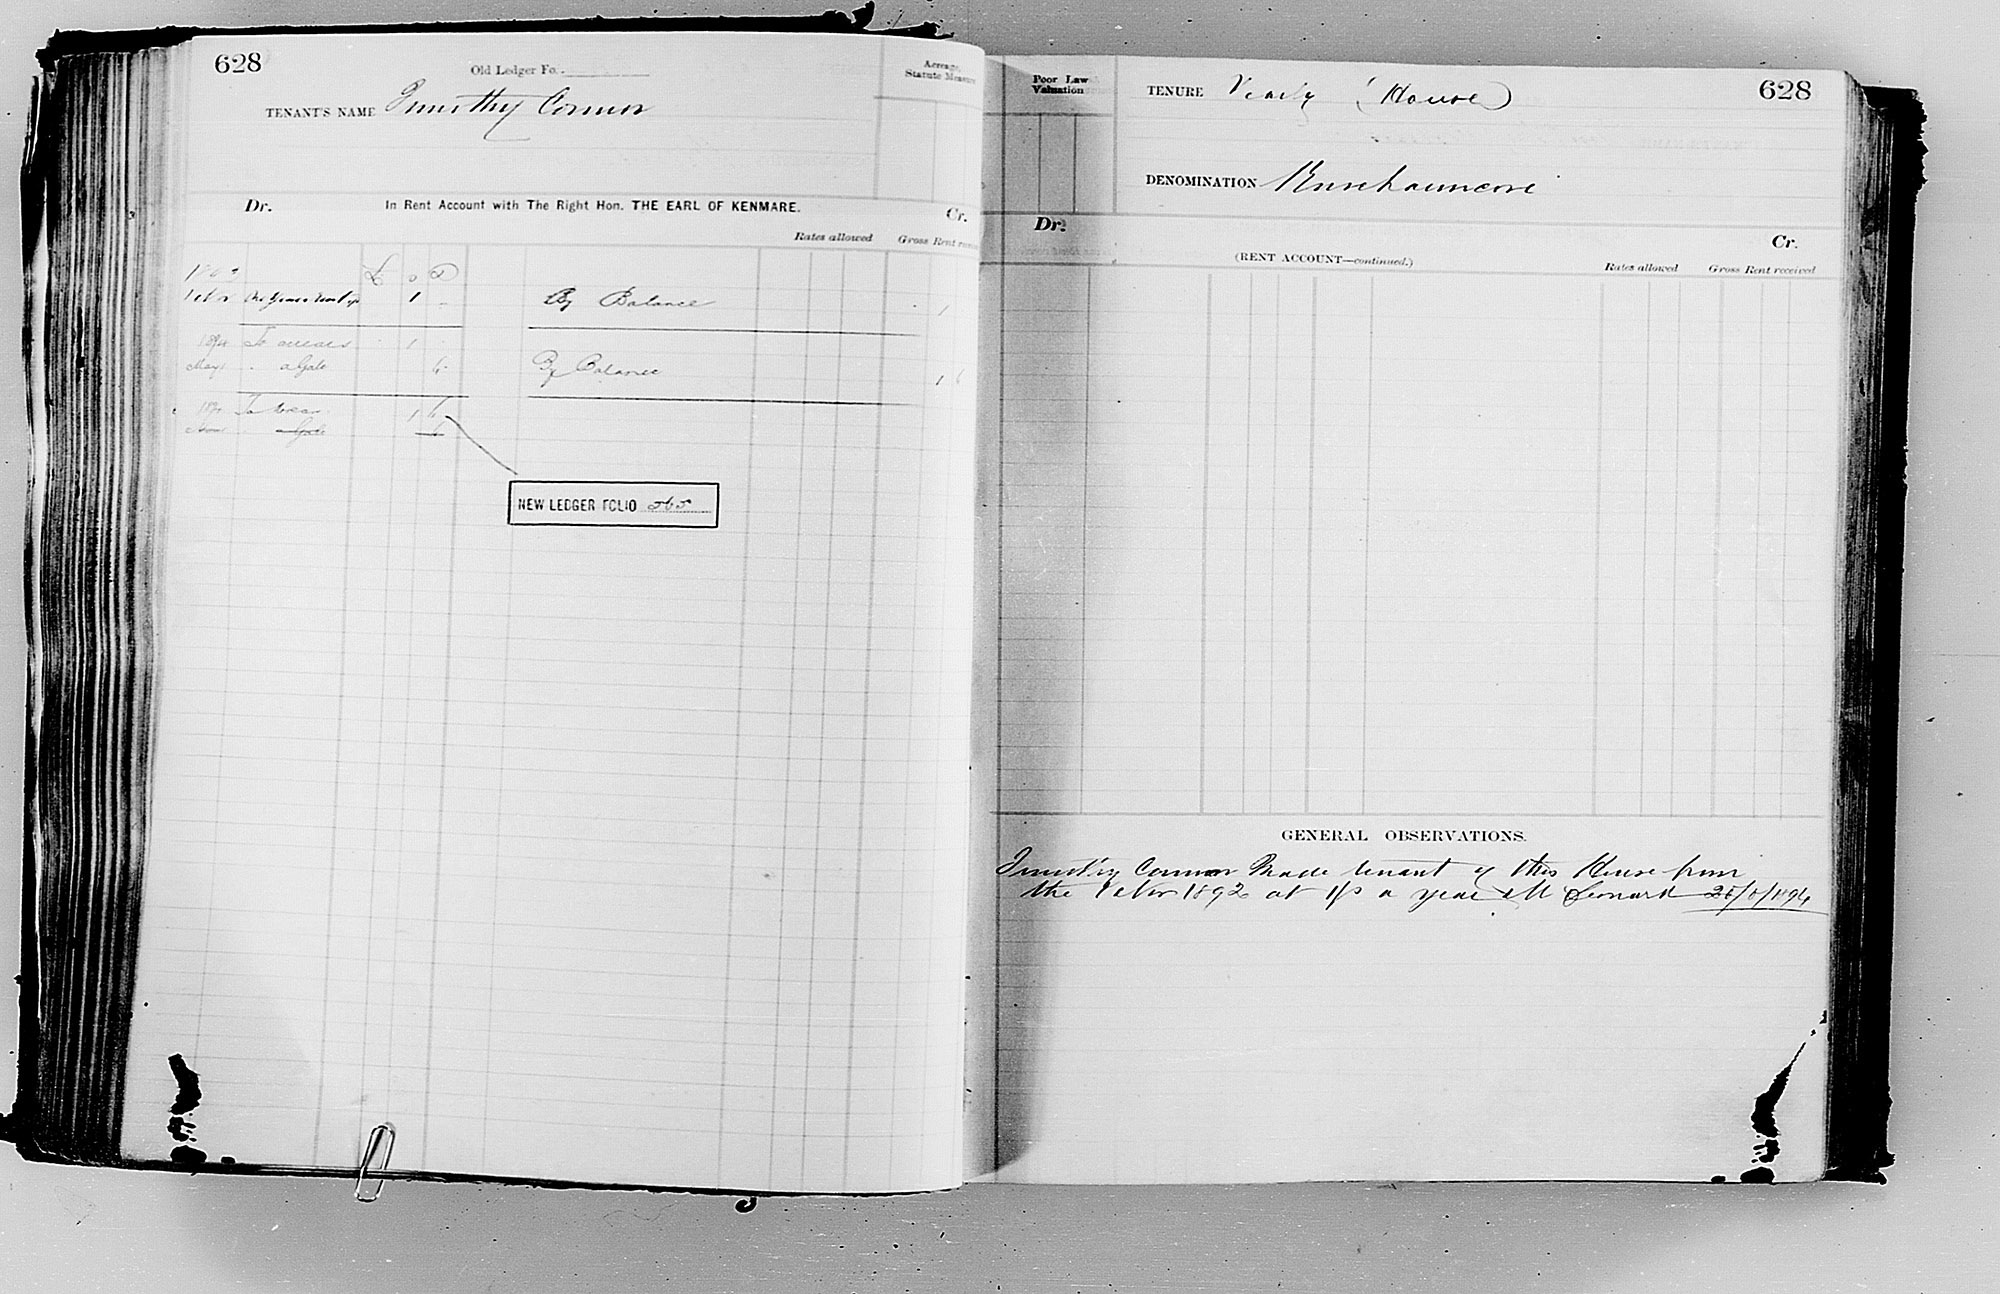 628
Old Ledger Fo.
Acreage, Statute Measure
TENANT'S NAME Timothy Connor
Dr. In Rent Account with The Right Hon. THE EARL OF KENMARE. Cr.
Rates allowed Gross Rent
£ s D
1 Nov One Years rent 1 - By Balance 1
To arrears 1
May a Gale 6 By Balance 1 6
To arrears 1 6
a Gale 6
NEW LEDGER FOLIO 565
Poor Law Valuation
TENURE Yearly (House)
628
DENOMINATION
Dr. Cr.
(RENT ACCOUNT—continued.)
Rates allowed Gross Rent received
GENERAL OBSERVATIONS.
Timothy Connor Made tenant of this House from
the 1 Nov 1892 at 1/s a year M Leonard